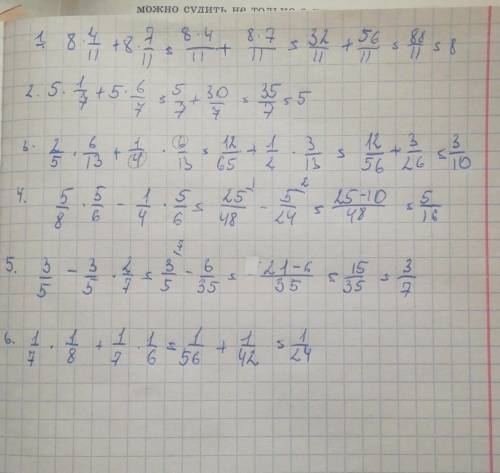 можно судить не только
1. 8 · 4/11 + 8 · 7/11 = 8·4/11 + 8·7/11 = 32/11 + 56/11 = 88/11 = 8
2. 5 · 1/7 + 5 · 6/7 = 5/7 + 30/7 = 35/7 = 5
3. 2/5 · 6/13 + 1/4 · 6/13 = 12/65 + 1/2 · 3/13 = 12/56 + 3/26 = 3/10
4. 5/8 · 5/6 - 1/4 · 5/6 = 25/48 ¹ - 5/24 ² = 25-10/48 = 5/16
5. 3/5 - 3/5 · 2/7 = 3/5 ⁷ - 6/35 = 21-6/35 = 15/35 = 3/7
6. 1/7 · 1/8 + 1/7 · 1/6 = 1/56 + 1/42 = 1/24